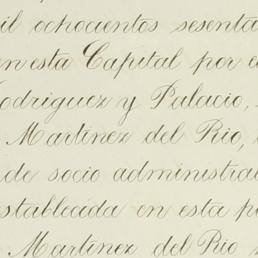 il ochocientos sesenta
en esta Capital por e
odriguez y Palacio,
Martinez del Rio,
de socio administra
establecida en esta p
Martinez del Rio